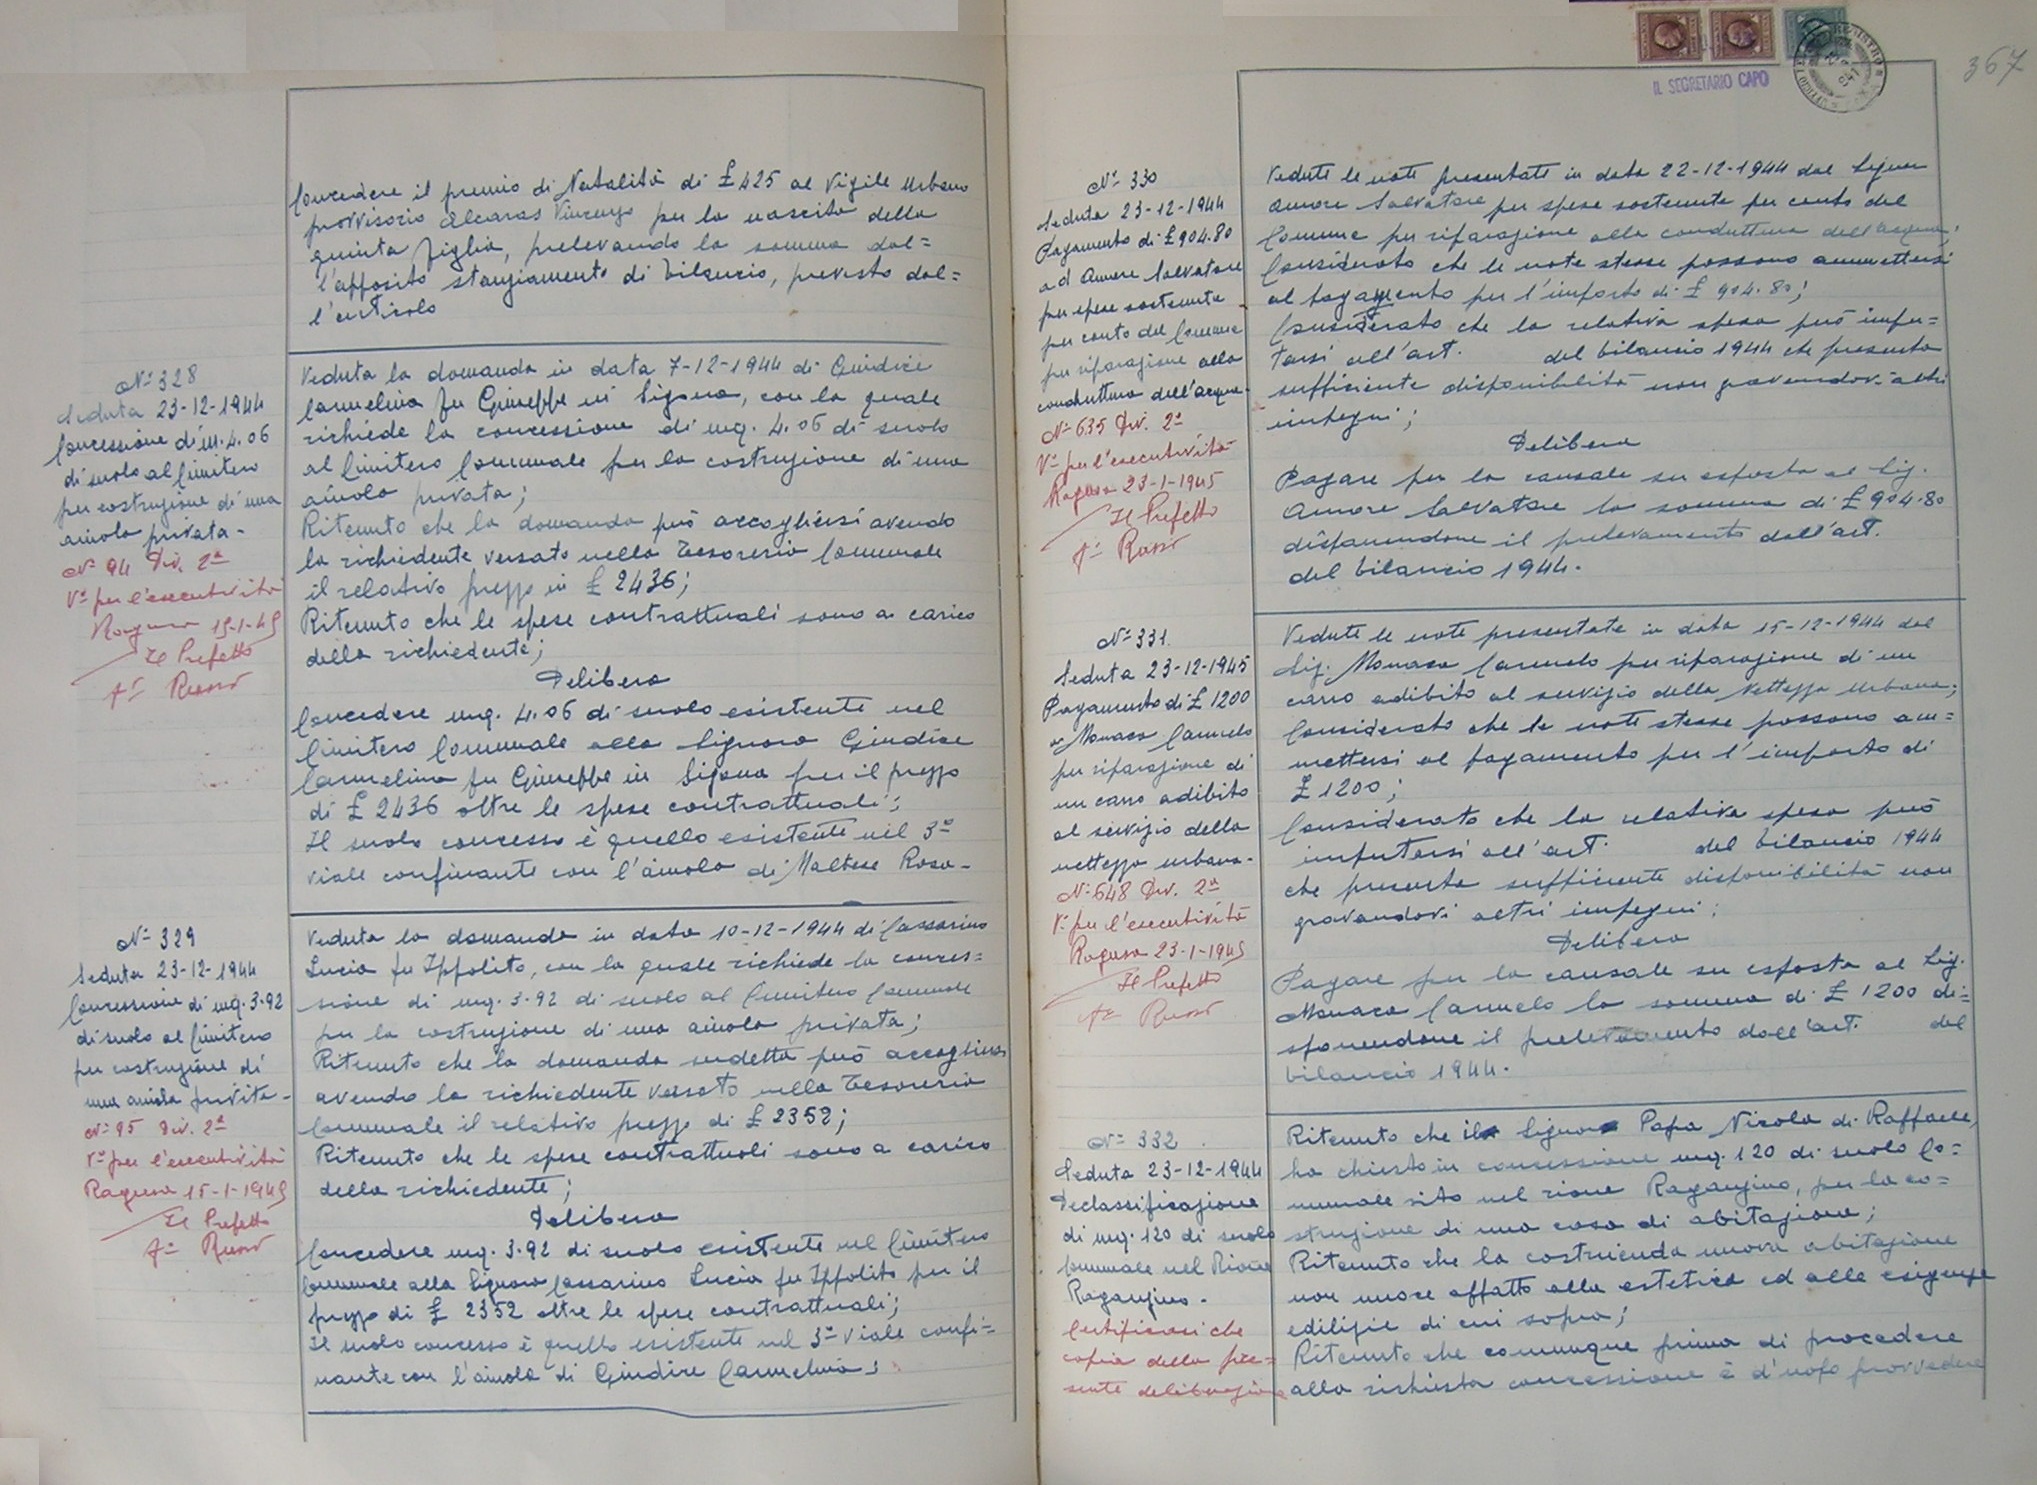 Concedere il premio di Natalità di £ 425 al Vigile Urbano
provvisorio Alcaras Vincenzo per la nascita della
quinta figlia, prelevando la somma dal=
l'apposito stanziamento di bilancio, previsto dal=
l'articolo
N° 328
Seduta 23-12-1944
Concessione di m. 4.06
di suolo al Cimitero
per costruzione di una
aiuola privata -
N° 94 Div. 2ª
V° per l'esecutività
Ragusa 15-1-45
Il Prefetto
Fto Russo
Veduta la domanda in data 7-12-1944 di Giudice
Carmelina fu Giuseppe in Sigona, con la quale
richiede la concessione di mq. 4.06 di suolo
al Cimitero Comunale per la costruzione di una
aiuola privata;
Ritenuto che la domanda può accogliersi avendo
la richiedente versato nella Tesoreria Comunale
il relativo prezzo in £ 2436;
Ritenuto che le spese contrattuali sono a carico
della richiedente;
Delibera
Concedere mq. 4.06 di suolo esistente nel
Cimitero Comunale alla Signora Giudice
Carmelina fu Giuseppe in Sigona per il prezzo
di £ 2436 oltre le spese contrattuali;
Il suolo concesso è quello esistente nel 3°
viale confinante con l'aiuola di Maltese Rosa-
N° 329
Seduta 23-12-1944
Concessione di mq. 3.92
di suolo al Cimitero
per costruzione di
una aiuola privata -
N° 95 Div. 2ª
V° per l'esecutività
Ragusa 15-1-1945
Il Prefetto
Fto Russo
Veduta la domanda in data 10-12-1944 di Cassarino
Lucia fu Ippolito, con la quale richiede la conces=
sione di mq. 3.92 di suolo al Cimitero Comunale
per la costruzione di una aiuola privata;
Ritenuto che la domanda sudetta può accogliersi
avendo la richiedente versato nella Tesoreria
Comunale il relativo prezzo di £ 2352;
Ritenuto che le spese contrattuali sono a carico
della richiedente;
Delibera
Concedere mq. 3.92 di suolo esistente nel Cimitero
Comunale alla Signora Cassarino Lucia fu Ippolito per il
prezzo di £ 2352 oltre le spese contrattuali;
Il suolo concesso è quello esistente nel 3° viale confi=
nante con l'aiuola di Giudice Carmelina;
IL SEGRETARIO CAPO
367
N° 330
Seduta 23-12-1944
Pagamento di £ 904.80
ad Amore Salvatore
per spese sostenute
per conto del Comune
per riparazione alla
conduttura dell'acqua.
N° 635 Div. 2ª
V° per l'esecutività
Ragusa 23-1-1945
Il Prefetto
Fto Russo
Vedute le note presentate in data 22-12-1944 dal Signor
Amore Salvatore per spese sostenute per conto del
Comune per riparazione alla conduttura dell'acqua;
Considerato che le note stesse possono ammettersi
al pagamento per l'importo di £ 904.80;
Considerato che la relativa spesa può impu=
tarsi all'art. del bilancio 1944 che presenta
sufficiente disponibilità non gravandovi altri
impegni;
Delibera
Pagare per la causale su esposta al Sig.
Amore Salvatore la somma di £ 904.80
disponendone il prelevamento dall'art.
del bilancio 1944.
N° 331
Seduta 23-12-1945
Pagamento di £ 1200
a Monaco Carmelo
per riparazione di
un carro adibito
al servizio della
nettezza urbana.
N° 648 Div. 2ª
V° per l'esecutività
Ragusa 23-1-1945
Il Prefetto
Fto Russo
Vedute le note presentate in data 15-12-1944 dal
Sig. Monaco Carmelo per riparazione di un
carro adibito al servizio della Nettezza Urbana;
Considerato che le note stesse possono am=
mettersi al pagamento per l'importo di
£ 1200;
Considerato che la relativa spesa può
imputarsi all'art. del bilancio 1944
che presenta sufficiente disponibilità non
gravandovi altri impegni;
Delibera
Pagare per la causale su esposta al Sig.
Monaco Carmelo la somma di £ 1200 di=
sponendone il prelevamento dall'art. del
bilancio 1944.
N° 332
Seduta 23-12-1944
Declassificazione
di mq. 120 di suolo
comunale nel Rione
Raganzino -
Certificasi che
copia della pre=
sente deliberazione
Ritenuto che il Signor Papa Nicola di Raffaele,
ha chiesto in concessione mq. 120 di suolo Co=
munale sito nel rione Raganzino, per la co=
struzione di una casa di abitazione;
Ritenuto che la costruenda nuova abitazione
non nuoce affatto alla estetica ed alle esigenze
edilizie di cui sopra;
Ritenuto che comunque prima di procedere
alla richiesta concessione è d'uopo provvedere